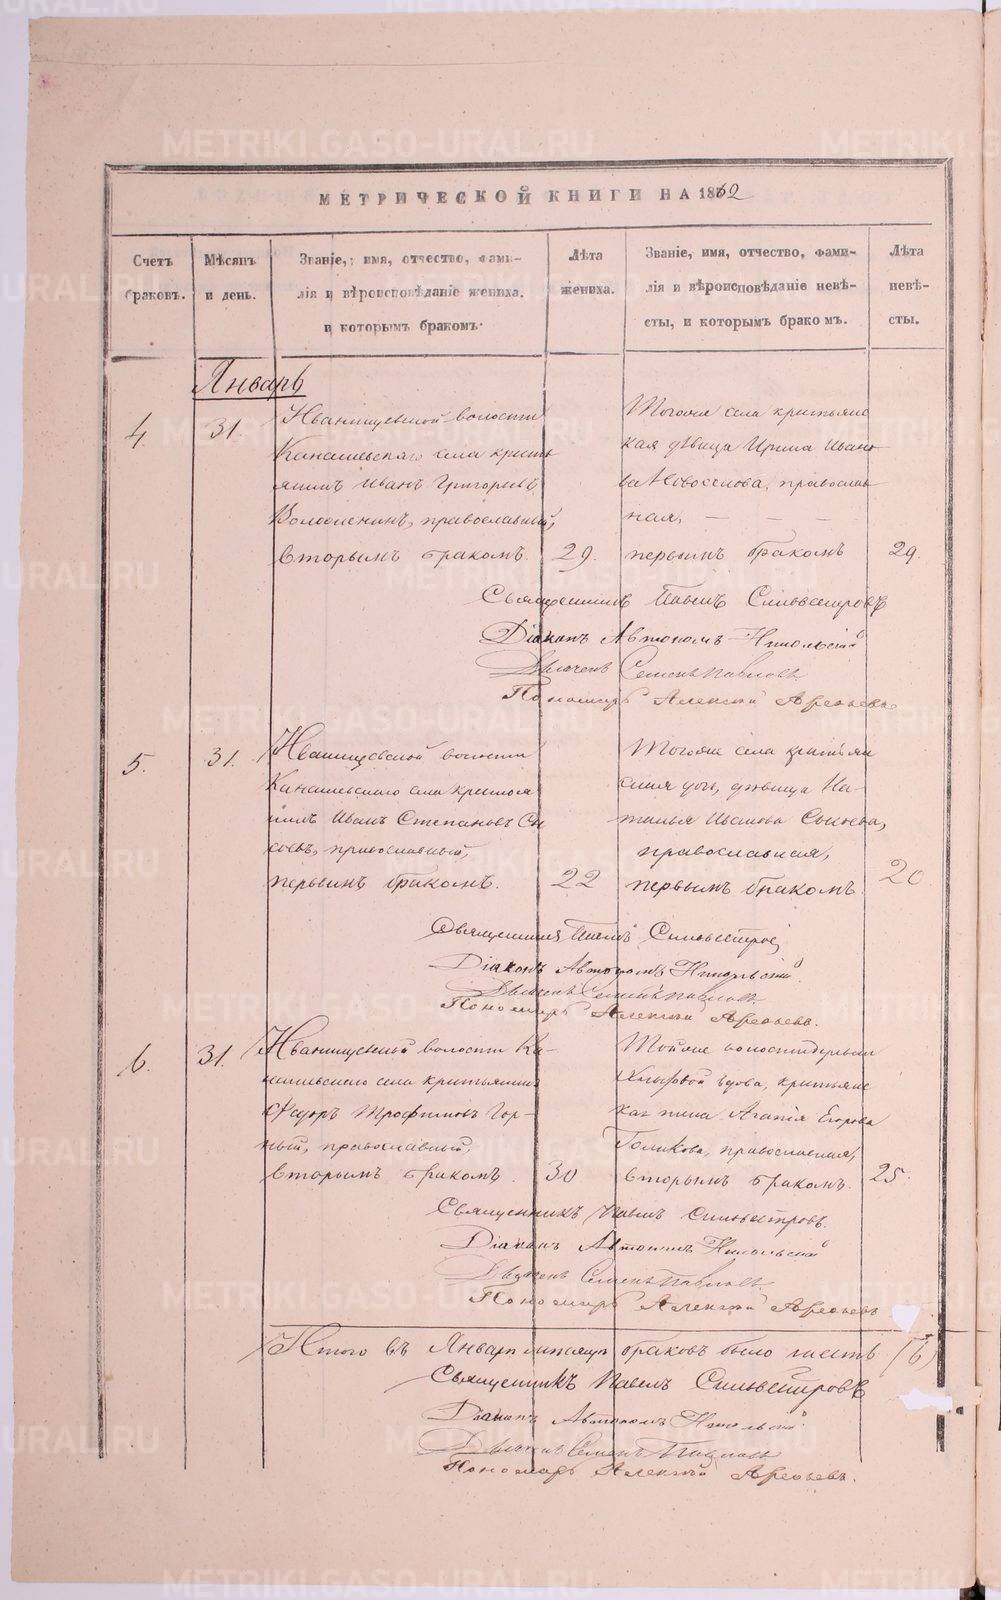 МЕТРИЧЕСКОЙ КНИГИ НА 1862
Счетъ браковъ.
Мѣсяцъ и день.
Званіе, имя, отчество, фами-
лія и вѣроисповѣданіе жениха.
и которымъ бракомъ.
Лѣта
жениха.
Званіе, имя, отчество, фами-
лія и вѣроисповѣданіе невѣ-
сты, и которымъ бракомъ.
Лѣта
невѣ-
сты.
Январь
4
31.
Иванищевской волости
Канашевскаго села кресть
янинъ Иванъ Григорьевъ
православный,
вторымъ бракомъ.
29.
Тогоже села крестьянс
кая дѣвица Ирина Ивано
ва Новоселова, православ
ная, — — —
первымъ бракомъ
29.
Священникъ Павелъ Сильвестровъ
Діаконъ Автономъ Никольскій
Дьячекъ Семенъ Павловъ
Пономарь Алексѣй Арефьевъ
5.
31.
Иванищевской волости
Канашевскаго села крестья
нинъ Иванъ Степановъ Сы
соевъ, православный,
первымъ бракомъ.
22
Тогоже села крестьян
ская дочь, дѣвица На-
талья Иванова
православная,
первымъ бракомъ.
20
Священникъ Павелъ Сильвестровъ
Діаконъ Автономъ Никольскій
Дьячекъ Семенъ Павловъ
Пономарь Алексѣй Арефьевъ.
6.
31.
Иванищевской волости Ка-
нашевскаго села крестьянинъ
Федоръ Трофимовъ Гор-
ный, православный,
вторымъ бракомъ.
30
Тойже волости деревни
вдова, крестьянс
кая жена Агапія Егорова
Голикова, православная,
вторымъ бракомъ.
25.
Священникъ Павелъ Сильвестровъ.
Діаконъ Автономъ Никольскій
Дьячекъ Семенъ Павловъ
Пономарь Алексѣй Арефьевъ
Итого въ Январѣ мѣсяцѣ браковъ было шесть (6)
Священникъ Павелъ Сильвестровъ
Діаконъ Автономъ Никольскій
Дьячекъ Семенъ Павловъ
Пономарь Алексѣй Арефьевъ.
METRIKI.GASO-URAL.RU